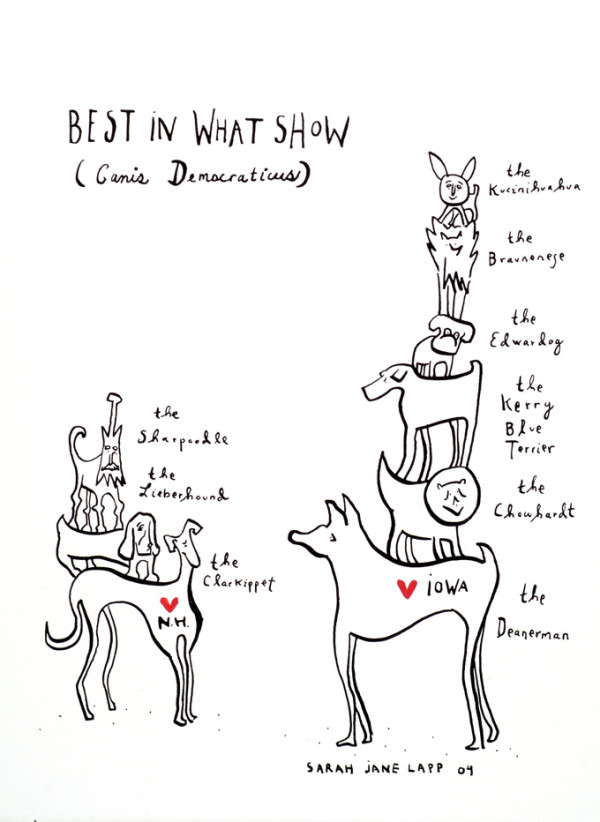 BEST IN WHAT SHOW
(Canis Democraticus)
the
Kucinihuahua
the
Braunonese
the
Edwardog
the
Kerry
Blue
Terrier
the
Chowhardt
the
Deanerman
the
Sharpoodle
the
Lieberhound
the
Clarkippet
N.H.
IOWA
SARAH JANE LAPP 04